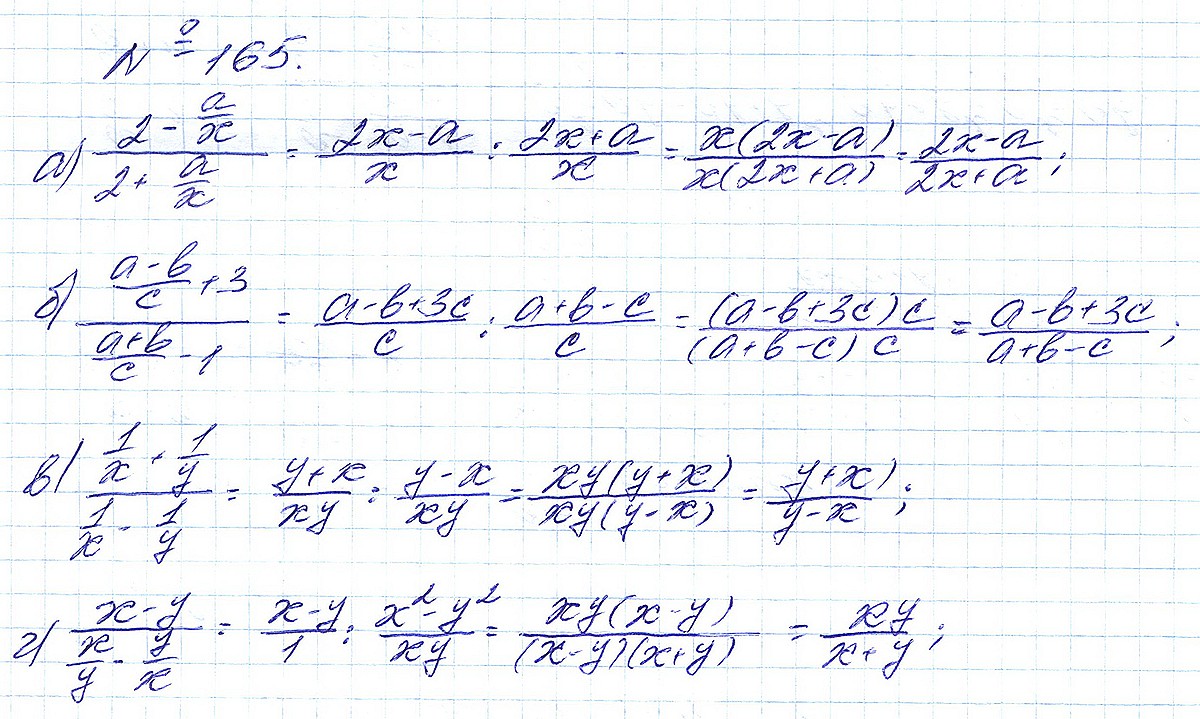 № 165.
а) (2 - a/x)/(2 + a/x) = (2x-a)/x : (2x+a)/x = x(2x-a)/x(2x+a) = (2x-a)/(2x+a);
б) ((a-b)/c + 3)/((a+b)/c - 1) = (a-b+3c)/c : (a+b-c)/c = (a-b+3c)c/(a+b-c)c = (a-b+3c)/(a+b-c);
в) (1/x + 1/y)/(1/x - 1/y) = (y+x)/xy : (y-x)/xy = xy(y+x)/xy(y-x) = y+x)/y-x;
г) (x-y)/(x/y - y/x) = (x-y)/1 : (x²-y²)/xy = xy(x-y)/(x-y)(x+y) = xy/(x+y);